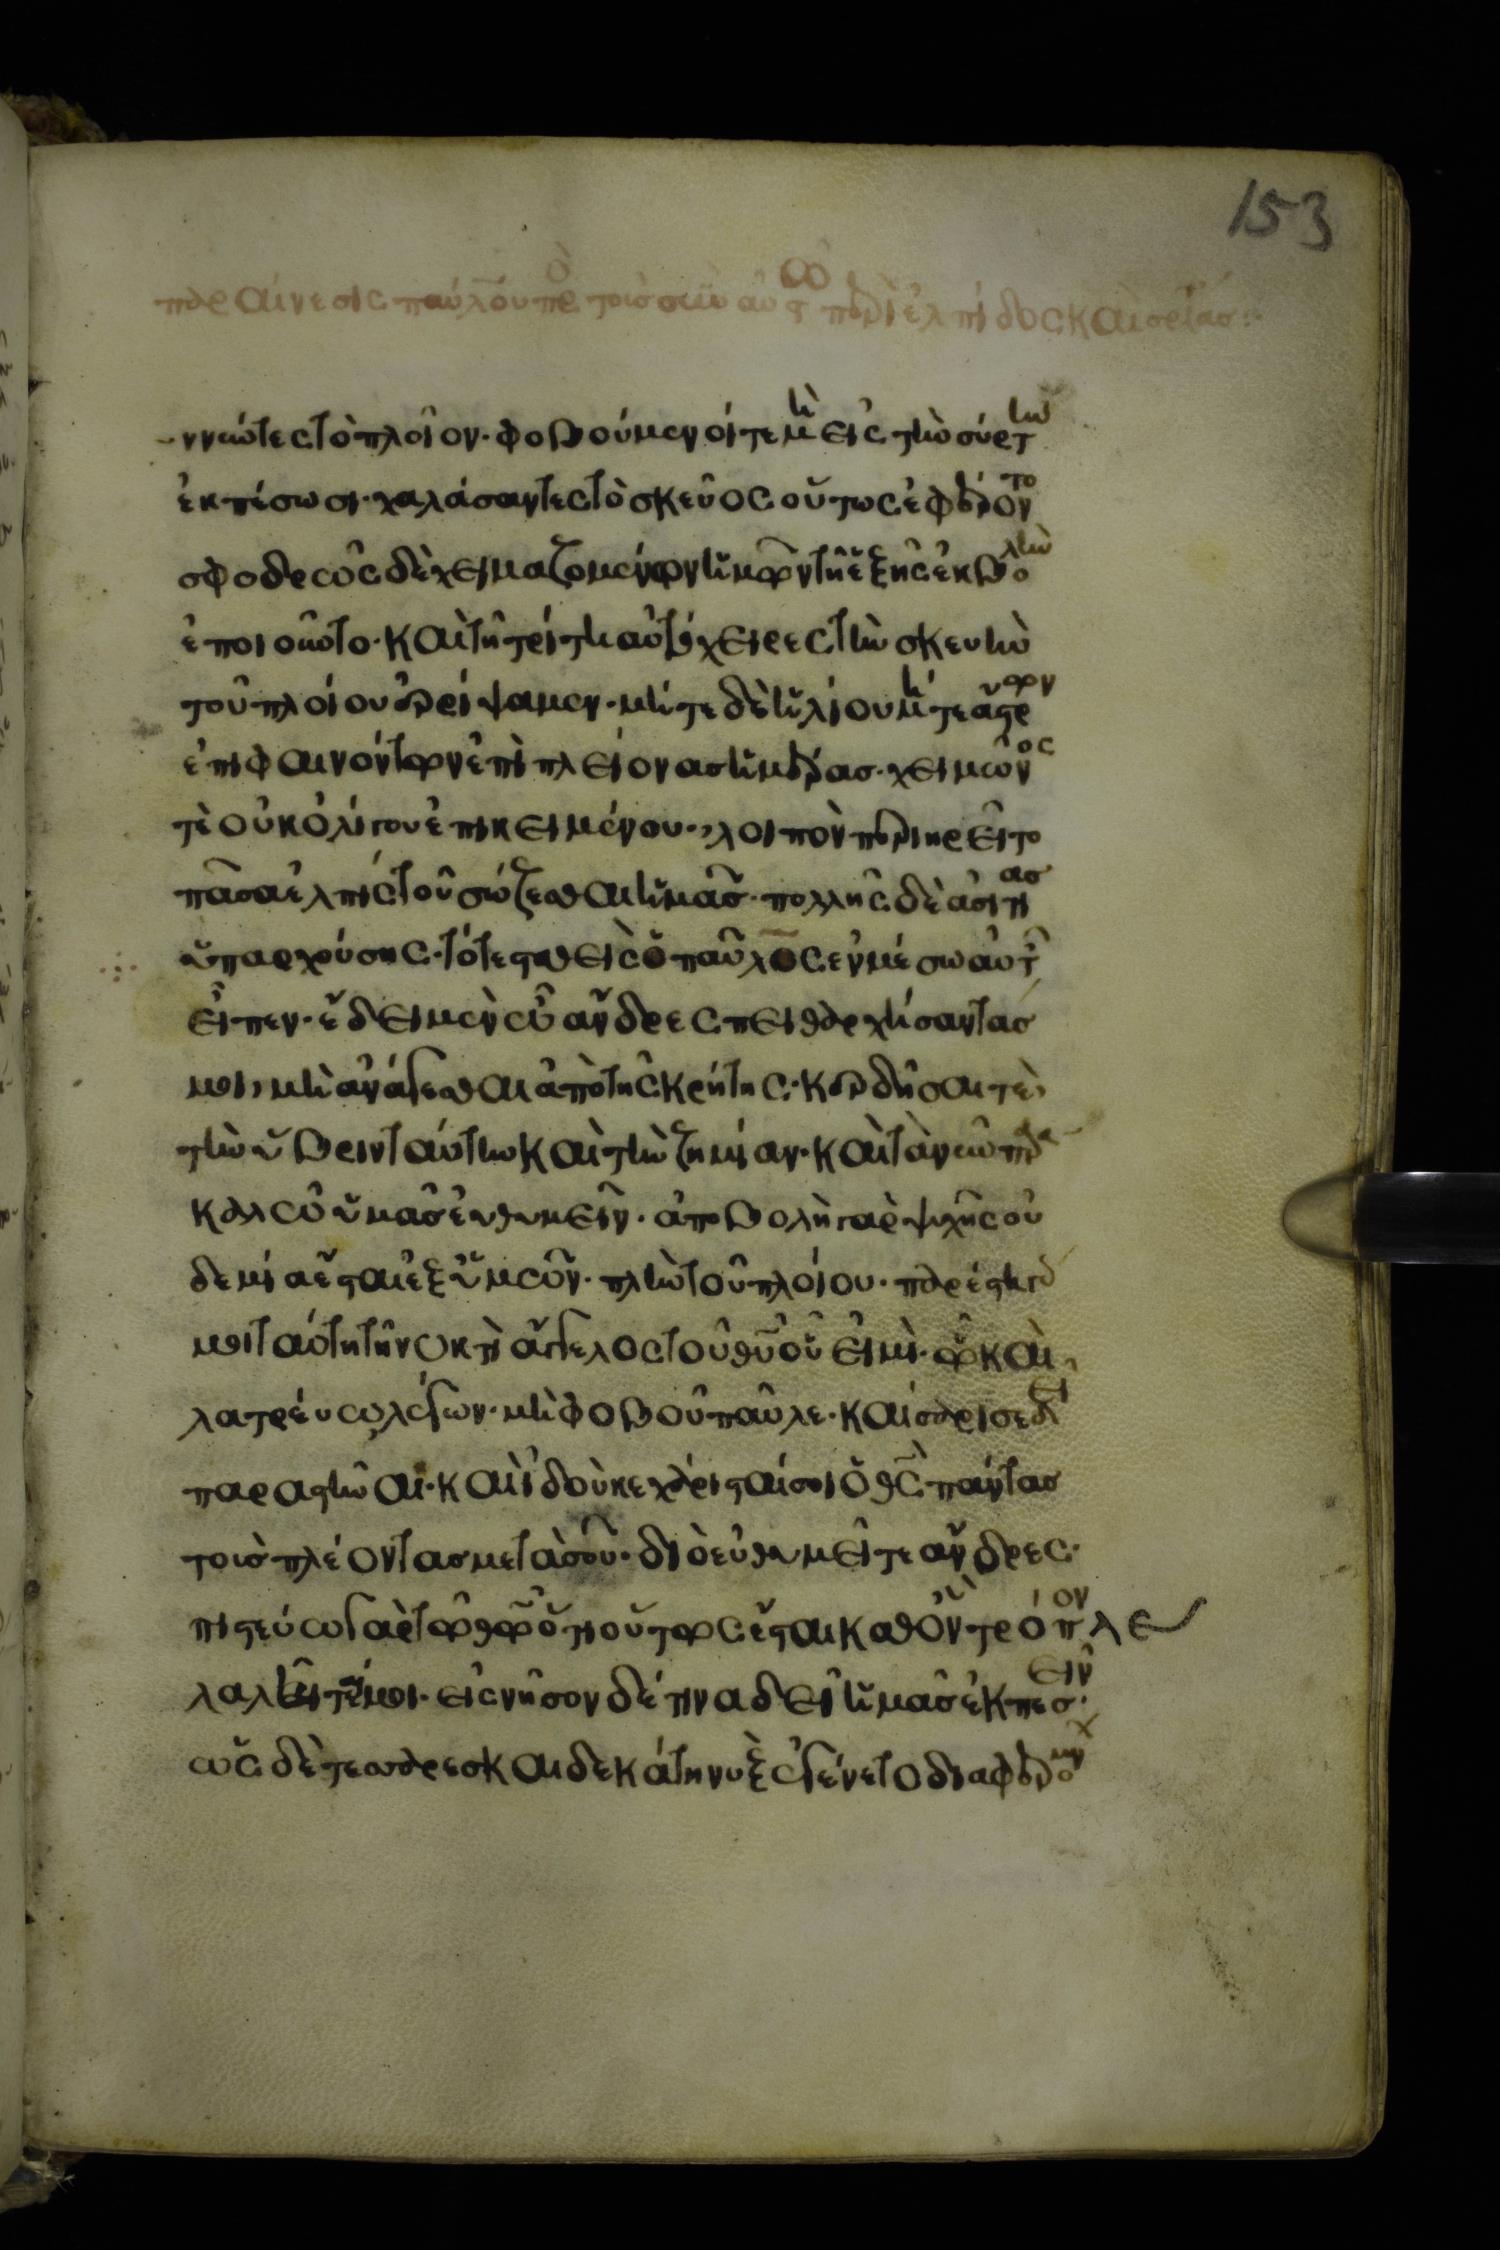 153
παραίνεσις παύλου πρ τοὺς σὺν αὐτ περὶ ἐλπίδος καὶ σρίας:·
ννύντες τὸ πλοῖον· φοβούμενοί τε μὴ εἰς τὴν σύρτην
ἐκπέσωσι· χαλάσαντες τὸ σκεῦος οὕτως ἐφέροντο
σφοδρῶς δὲ χειμαζομένων ἡμῶν τῇ ἑξῆς ἐκβολὴν
ἐποιοῦντο· καὶ τῇ τρίτῃ αὐτόχειρες τὴν σκευὴν
τοῦ πλοίου ἐρρίψαμεν· μήτε δὲ ἡλίου μήτε ἄστρων
ἐπιφαινόντων ἐπὶ πλείονας ἡμέρας· χειμῶνος
τὲ οὐκ ὀλίγου ἐπικειμένου·, λοιπὸν περιηρεῖτο
πᾶσα ἐλπὶς τοῦ σώζεσθαι ἡμᾶς· πολλῆς δὲ ἀσιτίας
ὑπαρχούσης· τότε σταθεὶς ὁ παῦλος ἐν μέσω αὐτ
εἶπεν· ἔδει μὲν ὦ ἄνδρες πειθαρχήσαντας
μοι, μὴ ἀνάγεσθαι ἀπὸ τῆς κρήτης· κερδῆσαι τὲ
τὴν ὕβριν ταύτην καὶ τὴν ζημίαν· καὶ τὰ νῦν πα
καλῶ ὑμᾶς εὐθυμεῖν· ἀποβολὴ γὰρ ψυχῆς οὐ
δεμία ἔσται ἐξ ὑμῶν· πλὴν τοῦ πλοίου· παρέστη γ
μοι ταύτη τῆ νυκτὶ ἄγγελος τοῦ θυ οὗ εἰμὶ· ᾧ καὶ
λατρεύω λέγων· μὴ φοβοῦ παῦλε· καίσαρι σε δεῖ
παραστῆναι· καὶ ἰδοὺ κεχάρισταί σοι ὁ θς πάντας
τοὺς πλέοντας μετὰ σοῦ· διὸ εὐθυμεῖτε ἄνδρες·
πιστεύω γὰρ τῶ θω ὅτι οὕτως ἔσται καθ ὃν τρόπον λε
λάληταί μοι· εἰς νῆσον δέ τινα δεῖ ἡμᾶς ἐκπεσεῖν·
ὡς δὲ τεσσαρεσκαιδεκάτη νὺξ ἐγένετο διαφερομεν